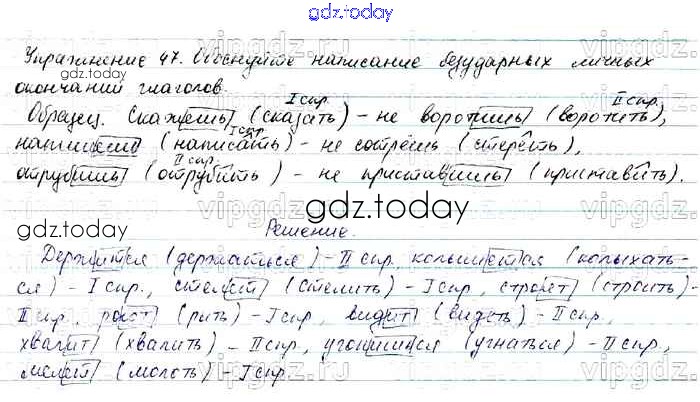 gdz.today
Упражнение 47. Обоснуйте написание безударных личных
gdz.today
окончаний глаголов.
I спр. II спр.
Образец. Скажешь (сказать) – не воротишь (воротить),
I спр.
напишешь (написать) – не сотрёшь (стереть),
II спр.
отрубишь (отрубить) – не приставишь (приставить).
gdz.today
Решение.
Держится (держаться) – II спр., колышется (колыхать-
ся) – I спр., стелет (стелить) – I спр., строет (строить) –
II спр., роет (рыть) – I спр., видит (видеть) – II спр.,
хвалит (хвалить) – II спр., угонишься (угнаться) – II спр.,
мелет (молоть) – I спр.
gdz.today